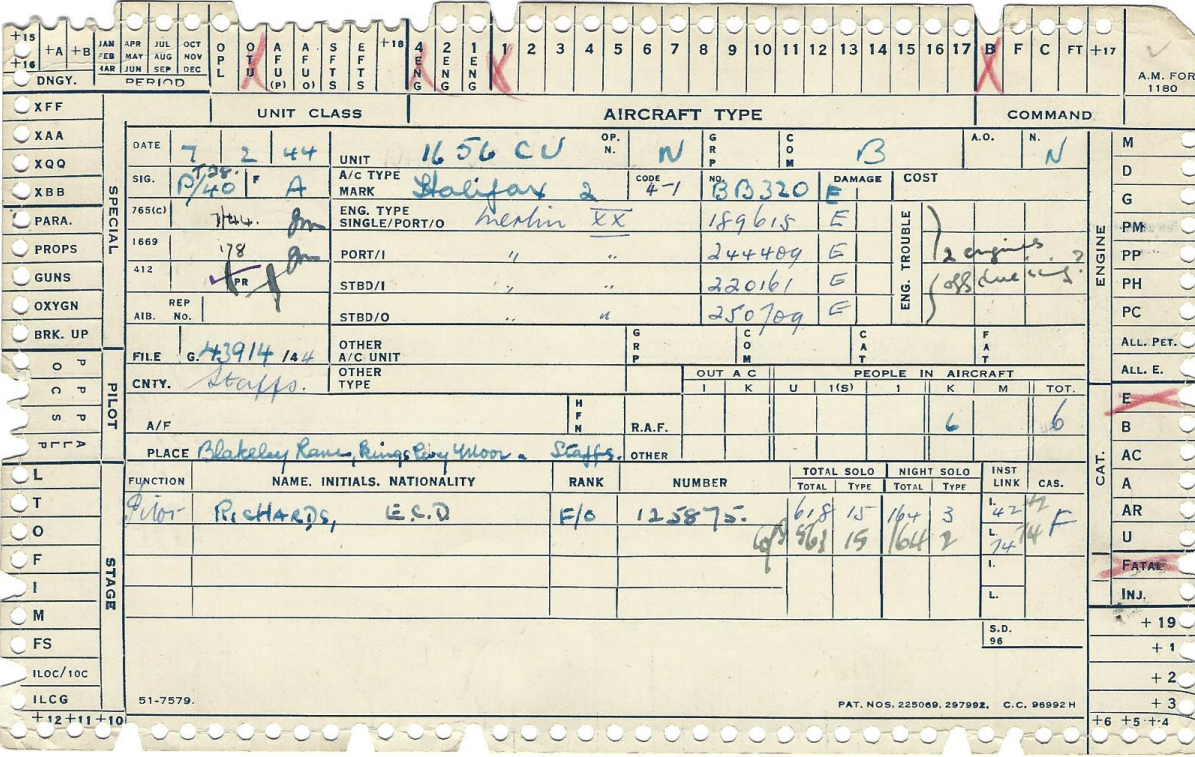 +15 +A +B JAN APR JUL OCT OPL OTU AFU(P) AFU(O) SFTS EFTS +18 4 ENG 2 ENG 1 ENG 1 2 3 4 5 6 7 8 9 10 11 12 13 14 15 16 17 B F C FT +17
+16 FEB MAY AUG NOV
MAR JUN SEP DEC
DNGY. PERIOD A.M. FOR
1180
XFF UNIT CLASS AIRCRAFT TYPE COMMAND
XAA DATE 7 2 44 UNIT 1656 CU OP. N. N GRP COM B A.O. N. N M
XQQ SIG. P/40 T.28. F A A/C TYPE MARK Halifax 2 CODE 4-1 NO. BB320 DAMAGE E COST D
XBB SPECIAL G
PARA. 765(c) 7/44. ENG. TYPE SINGLE/PORT/O Merlin XX 189615 E ENG. TROUBLE 2 engines PM
PROPS 1669 178 PORT/I " " 244409 E off due PP
GUNS 412 PR STBD/I " " 220161 E ENGINE PH
OXYGN AIB. REP No. STBD/O " " 250709 E PC
BRK. UP FILE G.43914/44 OTHER A/C UNIT GRP COM CAT FAT ALL. PET.
CNTY. Staffs. OTHER TYPE OUT A C PEOPLE IN AIRCRAFT ALL. E.
I K U 1(S) 1 K M TOT. E
PILOT A/F HFN R.A.F. 6 6 B
PLACE Blakeley Lane, Kingsley Moor. Staffs. OTHER CAT. AC
L FUNCTION NAME. INITIALS. NATIONALITY RANK NUMBER TOTAL SOLO NIGHT SOLO INST LINK CAS. A
TOTAL TYPE TOTAL TYPE
T Pilot RICHARDS, E.C.D F/O 125875. 618 15 164 3 I. 42 42 F AR
O 563 15 164 2 L. 74 74 U
F STAGE I. FATAL
I L. INJ.
M S.D. 96 +19
FS +1
ILOC/10C +2
ILCG 51-7579. PAT. NOS. 225069, 297992, C.C. 96992 H +3
+12 +11 +10 +6 +5 +4